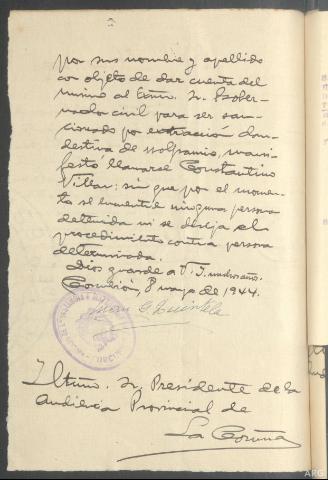 por sus nombre y apellido
con objeto de dar cuenta del
mismo al Exmo. Sr. Gober-
nador civil para ser san-
cionado por extracción clan-
destina de wolframio, mani-
festó llamarse Constantino
Villar; sin que por el momen-
to se encuentre ninguna persona
detenida ni se dirija el
procedimiento contra persona
determinada.
Dios guarde a V. I. muchos años.
Corcubión, 8 mayo de 1944.
G. Quintela
Iltmo. Sr. Presidente de la
Audiencia Provincial de
La Coruña
ARG